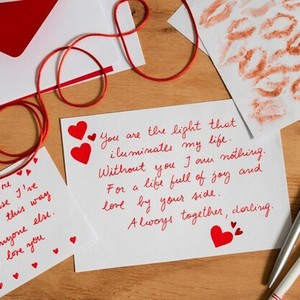 You are the light that
iluminates my life.
Without you I am nothing.
For a life full of joy and
love by your side.
Always together, darling.
I've
this way
anyone else.
love you